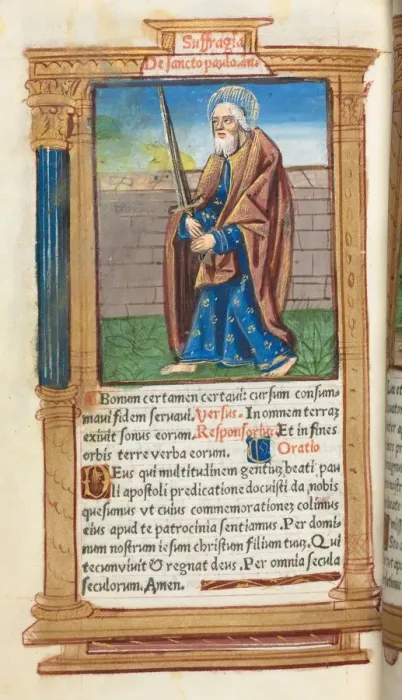 Suffragia
De sancto paulo. an.
Bonum certamen certaui: cursum consum-
maui fidem seruaui. Versus. In omnem terraʒ
exiuit sonus eorum. Responsorius. Et in fines
orbis terre verba eorum. Oratio
DEus qui multitudinem gentiuʒ beati pau
li apostoli predicatione docuisti da nobis
quesumus vt cuius commemorationeʒ colimus
eius apud te patrocinia sentiamus. Per domi
num nostrum iesum christum filium tuuʒ. Qui
tecum viuit & regnat deus. Per omnia secula
seculorum. Amen.